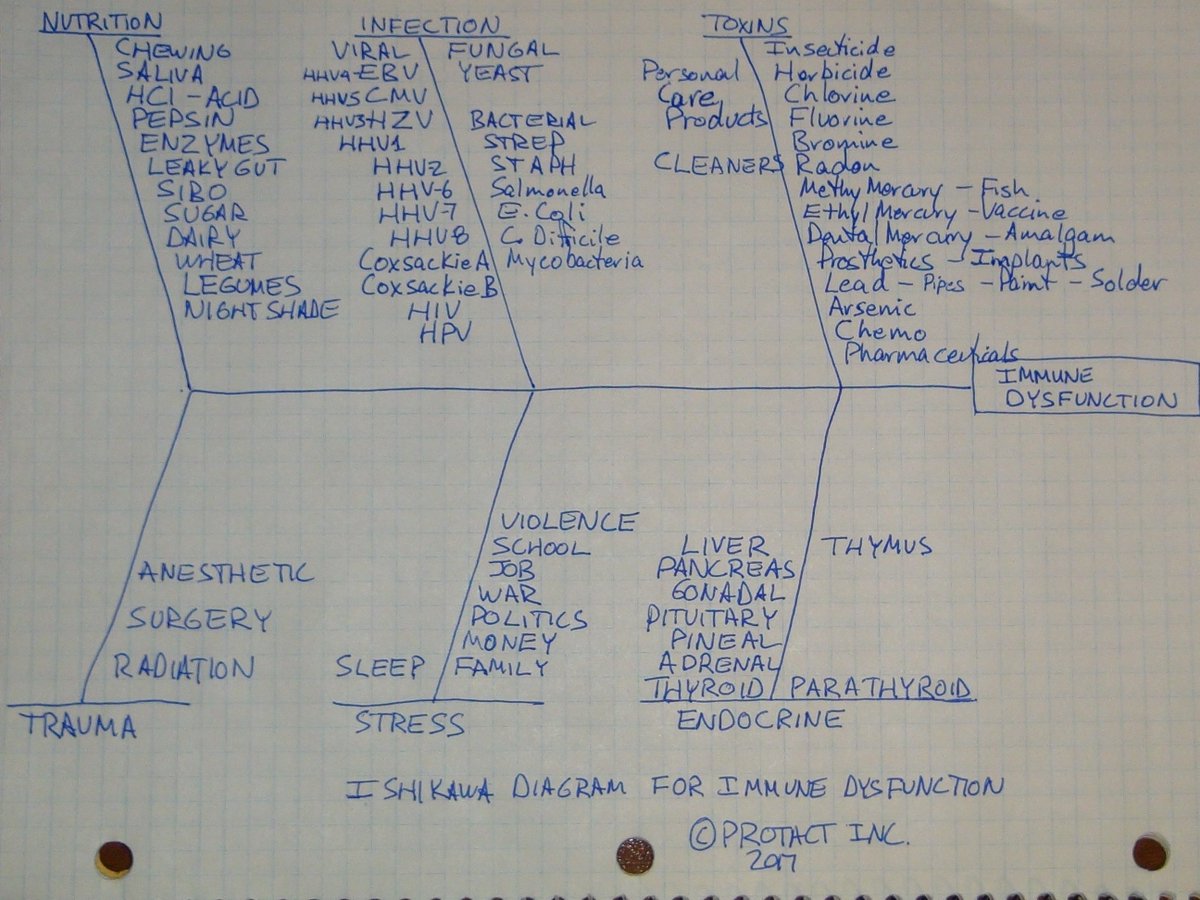 NUTRITION
CHEWING
SALIVA
HCl - ACID
PEPSIN
ENZYMES
LEAKY GUT
SIBO
SUGAR
DAIRY
WHEAT
LEGUMES
NIGHTSHADE
INFECTION
VIRAL
HHV4-EBV
HHV5 CMV
HHV3HZV
HHV1
HHV2
HHV-6
HHV-7
HHV8
Coxsackie A
Coxsackie B
HIV
HPV
FUNGAL
YEAST
BACTERIAL
STREP
STAPH
Salmonella
E. Coli
C. Dificile
Mycobacteria
TOXINS
Personal
Care
Products
CLEANERS
Insecticide
Herbicide
Chlorine
Fluorine
Bromine
Radon
Methyl Mercury - Fish
Ethyl Mercury - Vaccine
Dental Mercury - Amalgam
Prosthetics - Implants
Lead - Pipes - Paint - Solder
Arsenic
Chemo
Pharmaceuticals
IMMUNE
DYSFUNCTION
ANESTHETIC
SURGERY
RADIATION
TRAUMA
VIOLENCE
SCHOOL
JOB
WAR
POLITICS
MONEY
SLEEP FAMILY
STRESS
LIVER THYMUS
PANCREAS
GONADAL
PITUITARY
PINEAL
ADRENAL
THYROID PARATHYROID
ENDOCRINE
ISHIKAWA DIAGRAM FOR IMMUNE DYSFUNCTION
© PROTACT INC.
2017